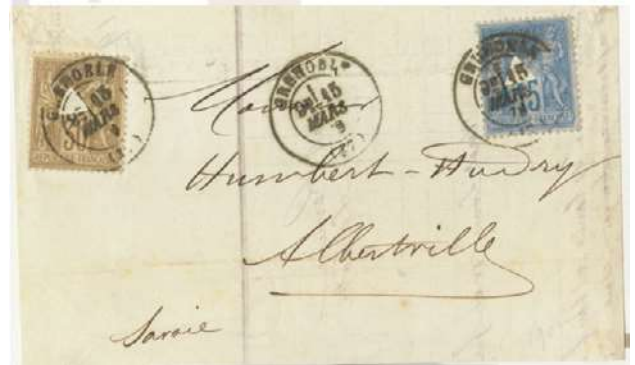 GRENOBLE
15
MARS
30
GRENOBLE
15
MARS
GRENOBLE
15
MARS
15
Monsieur
Humbert - Hudry
Albertville
Savoie